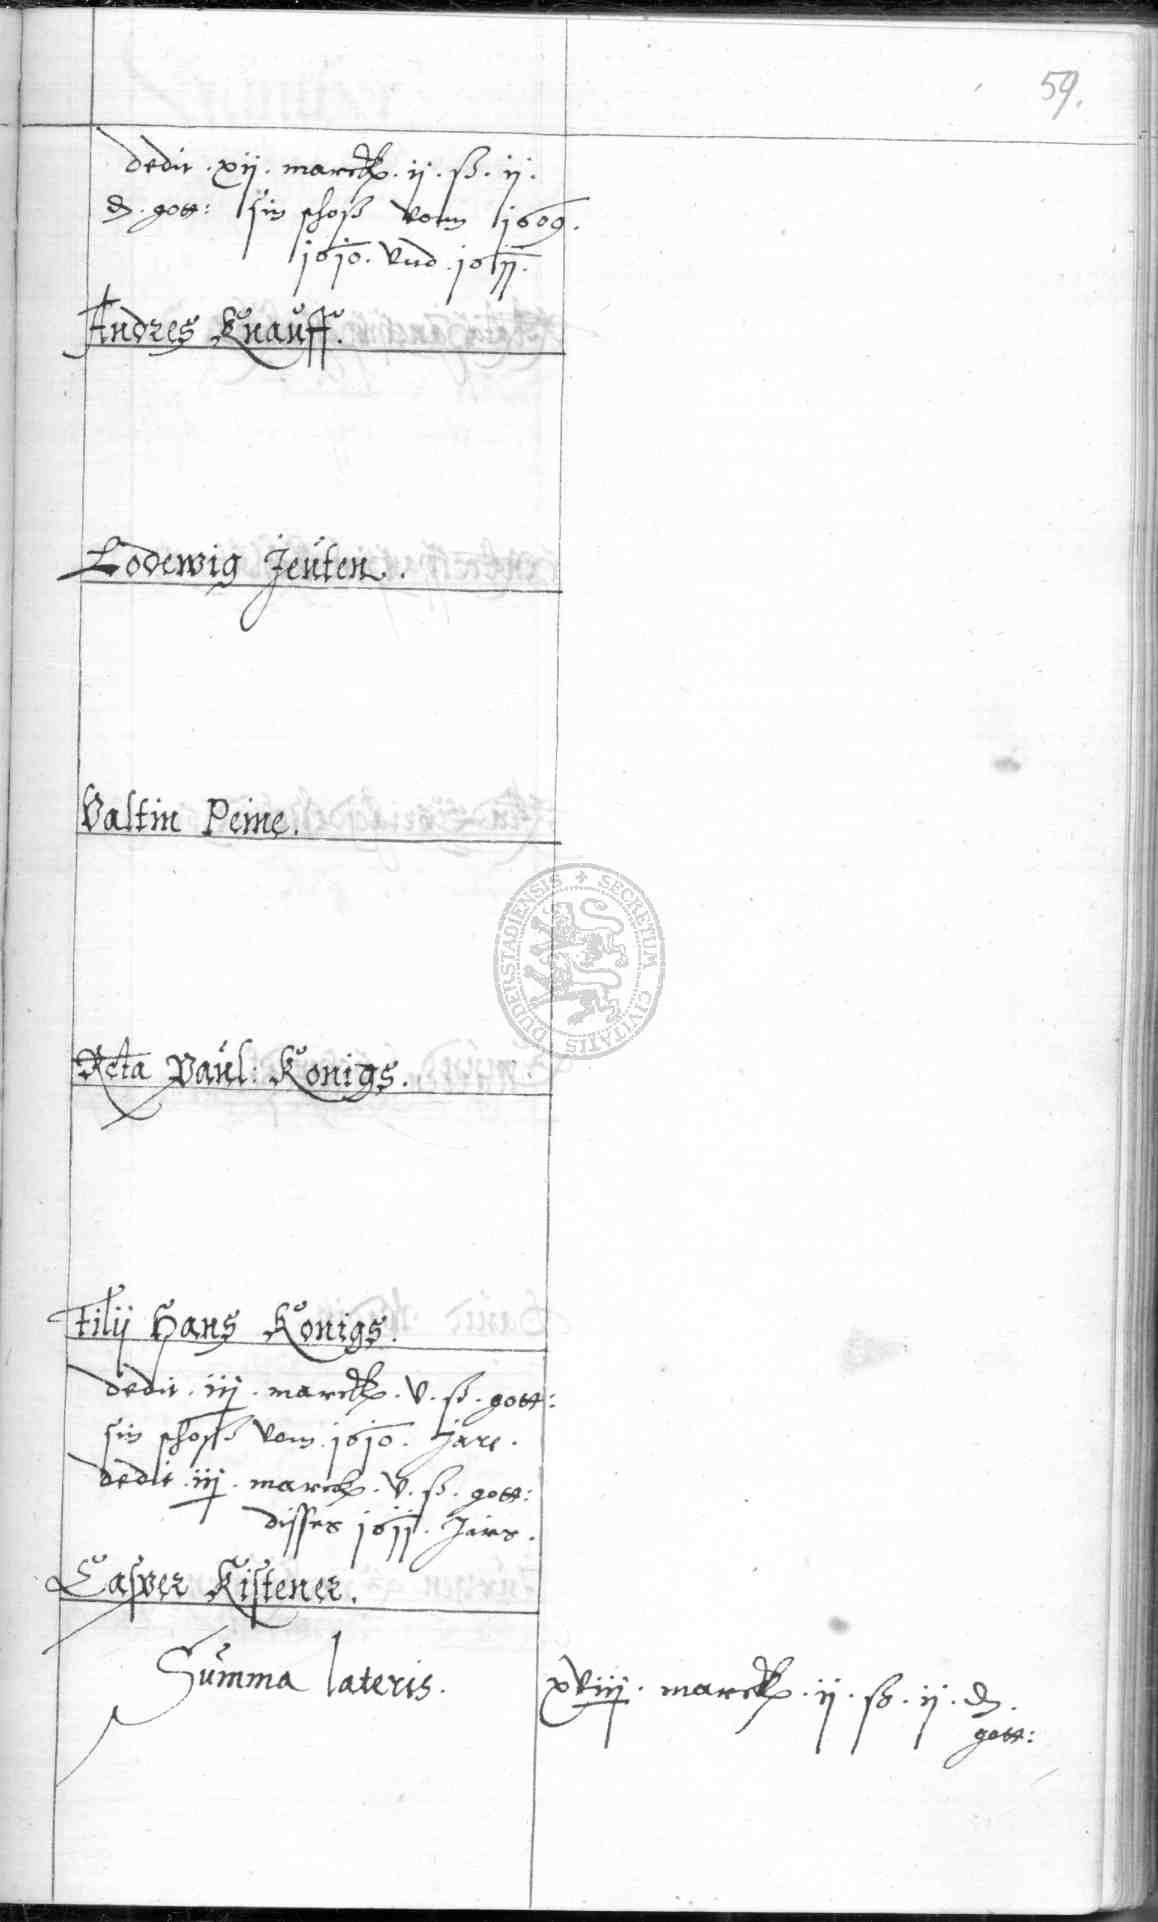 59.
dedit . xij . marck . ij . ß . ij .
₰ . gott: sin schoß vom 1609.
1610. vnd . 1611.
Andres Knauff.
Lodewig Jeuten.
Valtin Peine.
Rcta Paul: Konigs.
filij Hans Konigs.
dedit . iij . marck . v . ß . gott:
sin schoß vom . 1610 . Jare .
dedit . iij . marck . v . ß . gott:
disses 1611 . Jars .
Casper Kistener.
Summa lateris.
xviij . marck . ij . ß . ij . ₰ .
gott:
SECRETUM CIVITATIS DUDERSTADIENSIS